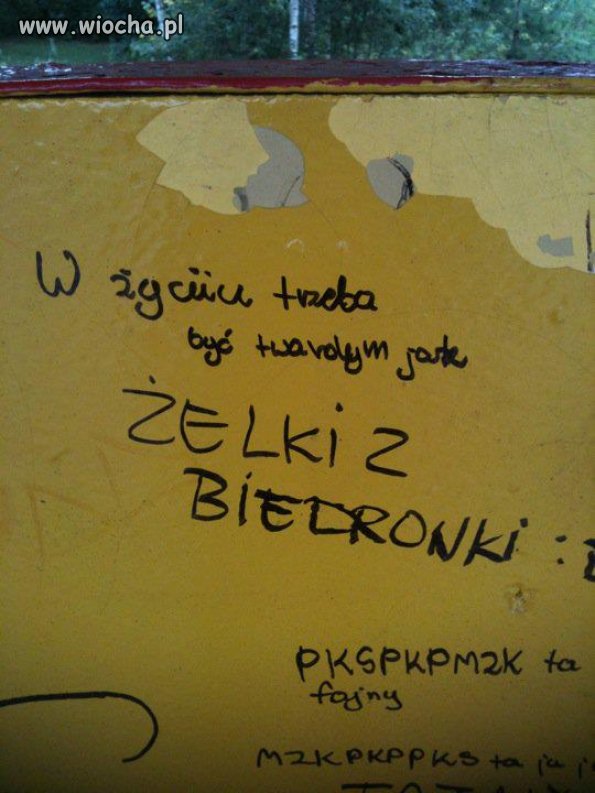 www.wiocha.pl
W życiu trzeba
być twardym jak
ŻELKI Z
BIEDRONKI :D
PKSPKPMZK ta
fajny
MZKPKPPKS ta ja